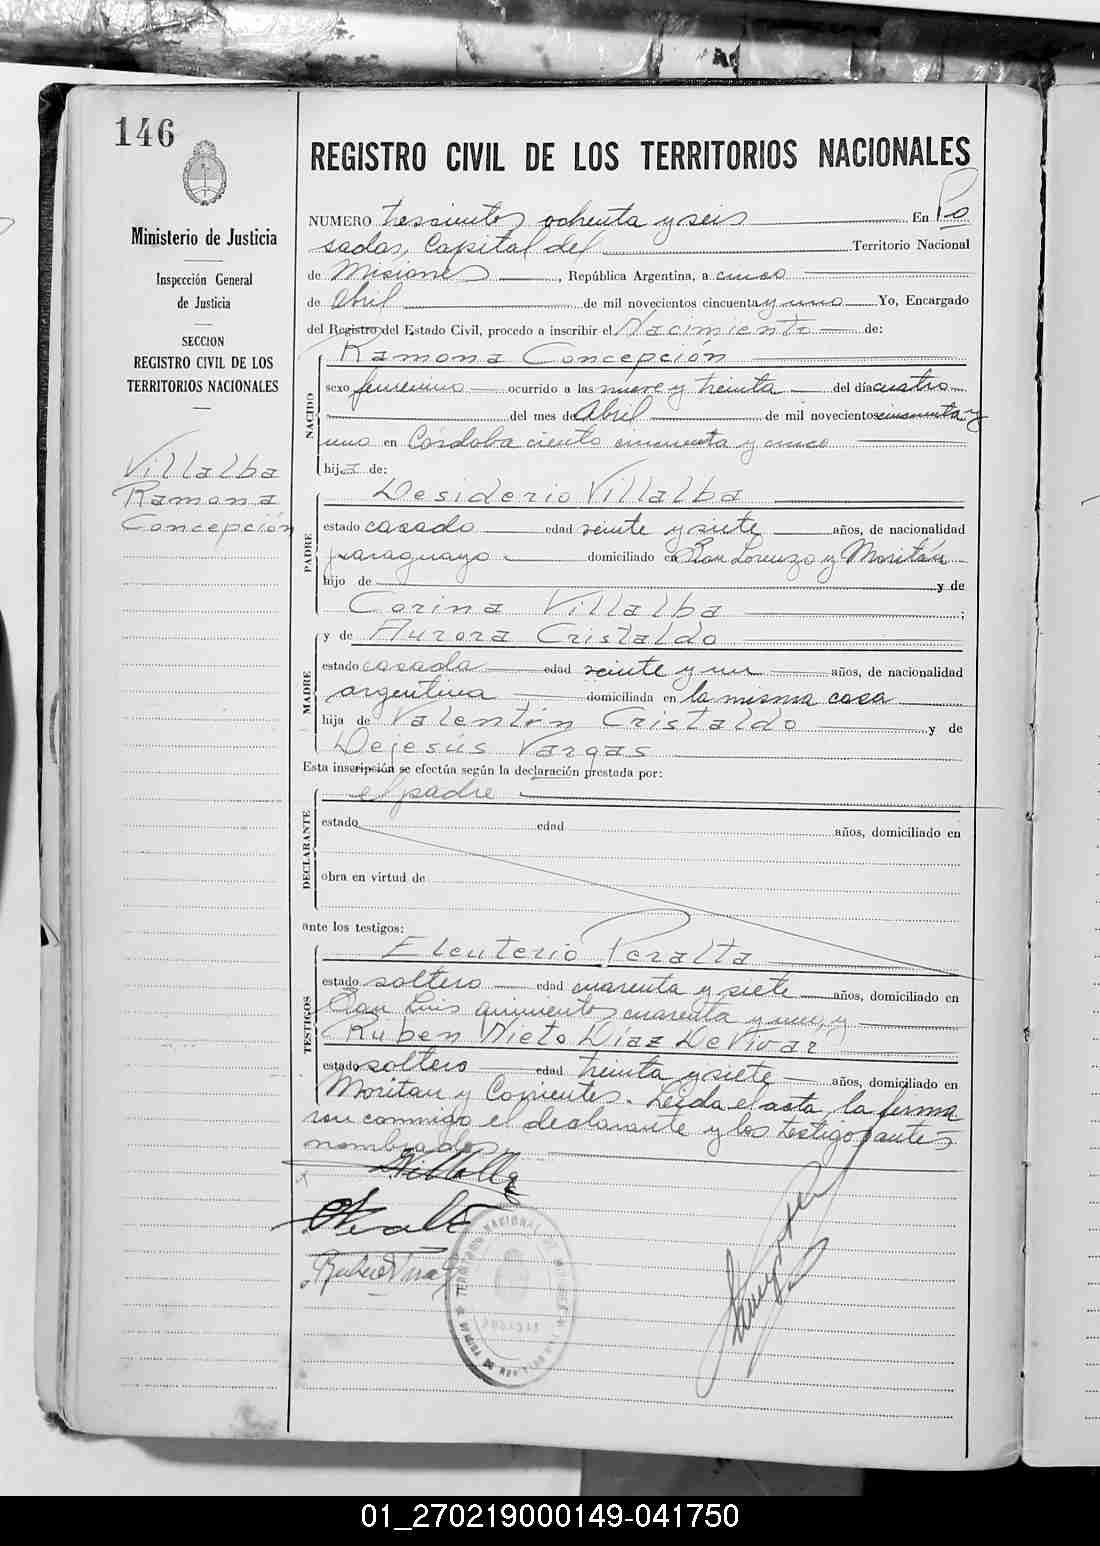 146
REGISTRO CIVIL DE LOS TERRITORIOS NACIONALES
Ministerio de Justicia
Inspección General
de Justicia
SECCION
REGISTRO CIVIL DE LOS
TERRITORIOS NACIONALES
Villalba
Ramona
Concepción
NUMERO trescientos ochenta y seis En Po
sadas, Capital del Territorio Nacional
de Misiones, República Argentina, a cinco
de Abril de mil novecientos cincuenta y uno Yo, Encargado
del Registro del Estado Civil, procedo a inscribir el Nacimiento de:
NACIDO
Ramona Concepción
sexo femenino ocurrido a las nueve y treinta del día cuatro
del mes de Abril de mil novecientos cincuenta y
uno en Córdoba ciento cincuenta y cinco
hija de:
PADRE
Desiderio Villalba
estado casado edad veinte y siete años, de nacionalidad
paraguayo domiciliado en San Lorenzo y Moritán
hijo de y de
Corina Villalba ;
y de Aurora Cristaldo
MADRE
estado casada edad veinte y un años, de nacionalidad
argentina domiciliada en la misma casa
hija de Valentín Cristaldo y de
Dejesús Vargas
Esta inscripción se efectúa según la declaración prestada por:
DECLARANTE
el padre
estado edad años, domiciliado en
obra en virtud de
ante los testigos:
TESTIGOS
Eleuterio Peralta
estado soltero edad cuarenta y siete años, domiciliado en
San Luis quinientos cuarenta y uno, y
Ruben Nieto Díaz De Vivar
estado soltero edad treinta y siete años, domiciliado en
Moritan y Corrientes. Leída el acta, la firma
ron conmigo el declarante y los testigos antes
nombrados
DVillalba
01_270219000149-041750